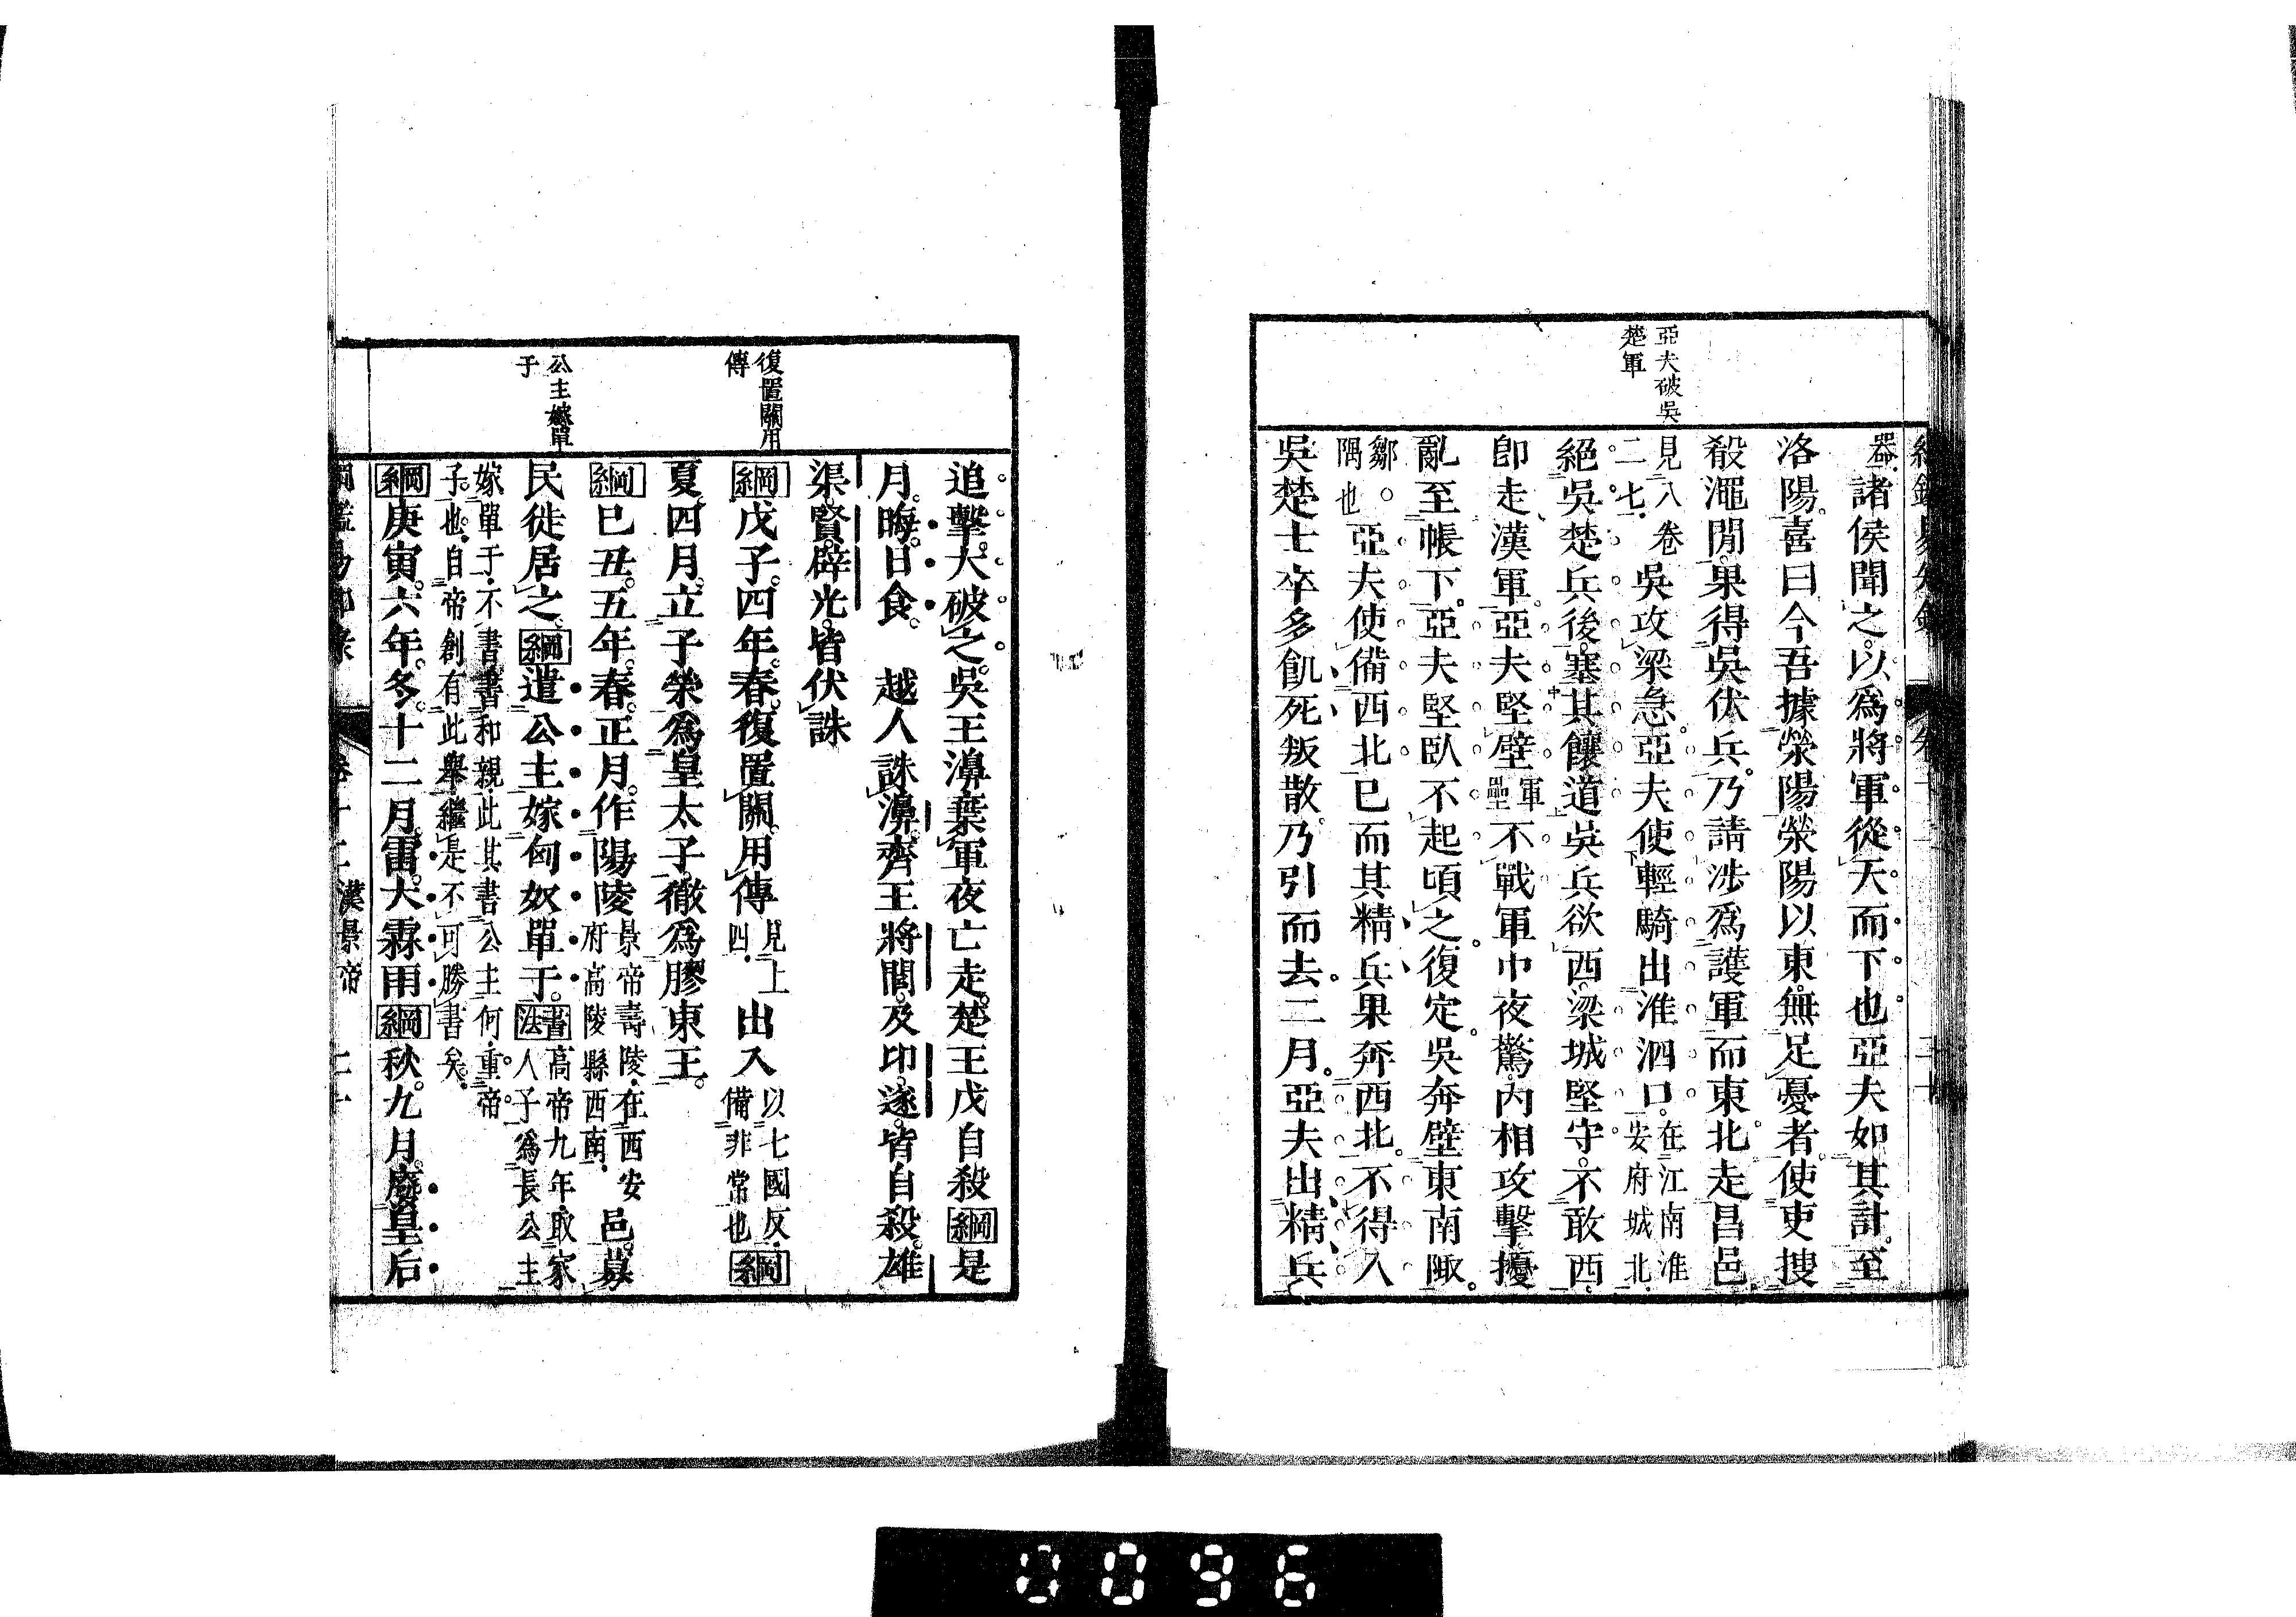 亞夫破吳
楚軍
器諸侯聞之。以爲將軍從天而下也亞夫如其計。至
洛陽。喜曰今吾據滎陽。滎陽以東。無足憂者。使吏搜
殽澠間。果得吳伏兵。乃請涉爲護軍而東北走昌邑。
見八卷
二七
吳攻梁急。亞夫使輕騎出淮泗口。
在江南淮
安府城北
絕吳楚兵後。塞其饟道吳兵欲西。梁城堅守。不敢西
卽走漢軍。亞夫堅壁
軍壘
不戰軍中夜驚。內相攻擊擾
亂至帳下。亞夫堅臥不起頃之。復定。吳奔壁東南陬。
鄒
隅也
亞夫使備西北已而其精兵果奔西北。不得入
吳楚士卒多飢死叛散。乃引而去。二月。亞夫出精兵
復置關用
傳
公主嫁單
于
追擊。大破之。吳王濞棄軍夜亡走。楚王戊自殺綱是
月。晦。日食。 越人誅濞。齊王將閭。及卬。遂。皆自殺。雄
渠。賢。辟光。皆伏誅
綱戊子。四年。春。復置關。用傳
見上
四
出入
以七國反
備非常也
綱
夏。四月。立子榮爲皇太子。徹爲膠東王。
綱己丑。五年。春。正月。作陽陵
景帝壽陵在西安
府高陵縣西南
邑。募
民徙居之。綱遣公主嫁匈奴單于。書法
高帝九年取家
人子爲長公主
嫁單于不書書和親此其書公主何重帝
子也自帝創有此舉繼是不可勝書矣
綱庚寅。六年。冬。十二月。雷。大霖雨綱秋。九月。廢皇后
漢景帝
0096